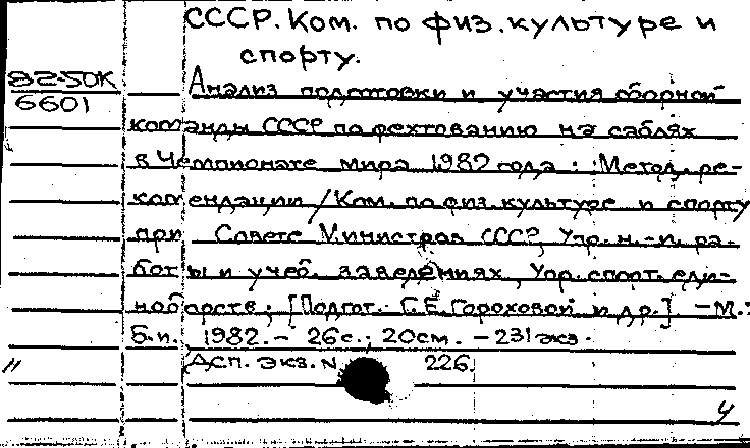 СССР. Ком. по физ. культуре и
спорту.
82-50К
6601
Анализ подготовки и участия сборной
команды СССР по фехтованию на саблях
в Чемпионате мира 1982 года : Метод. ре-
комендации / Ком. по физ. культуре и спорту
при Совете Министров СССР, Упр. н.-и. ра-
боты и учеб. заведениях, Упр. спорт. еди-
ноборств; [Подгот. Г.Е. Гороховой и др.]. - М.:
Б.и., 1982. - 26с.; 20см. - 231 экз.
Дсп. Экз. N 226.
"
4